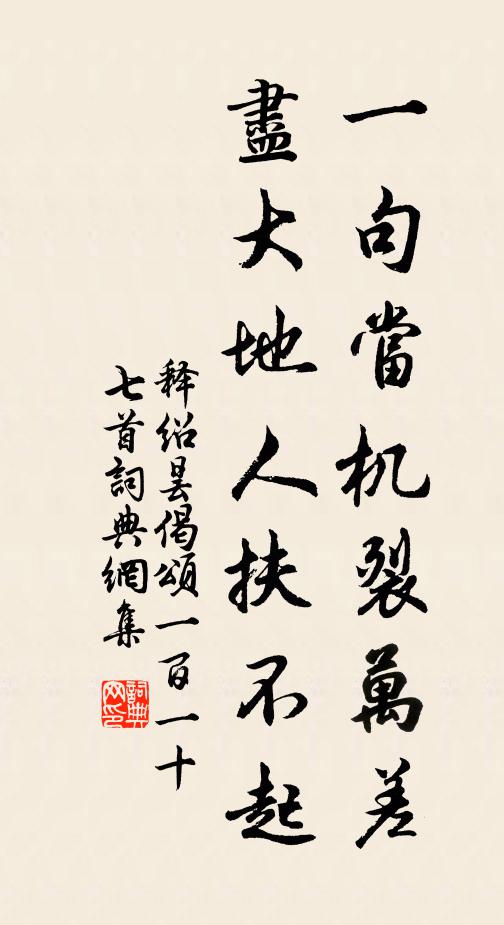 一句當机裂萬差
盡大地人扶不起
释绍昙偈頌一百一十
七首詞典網集
詞典网印